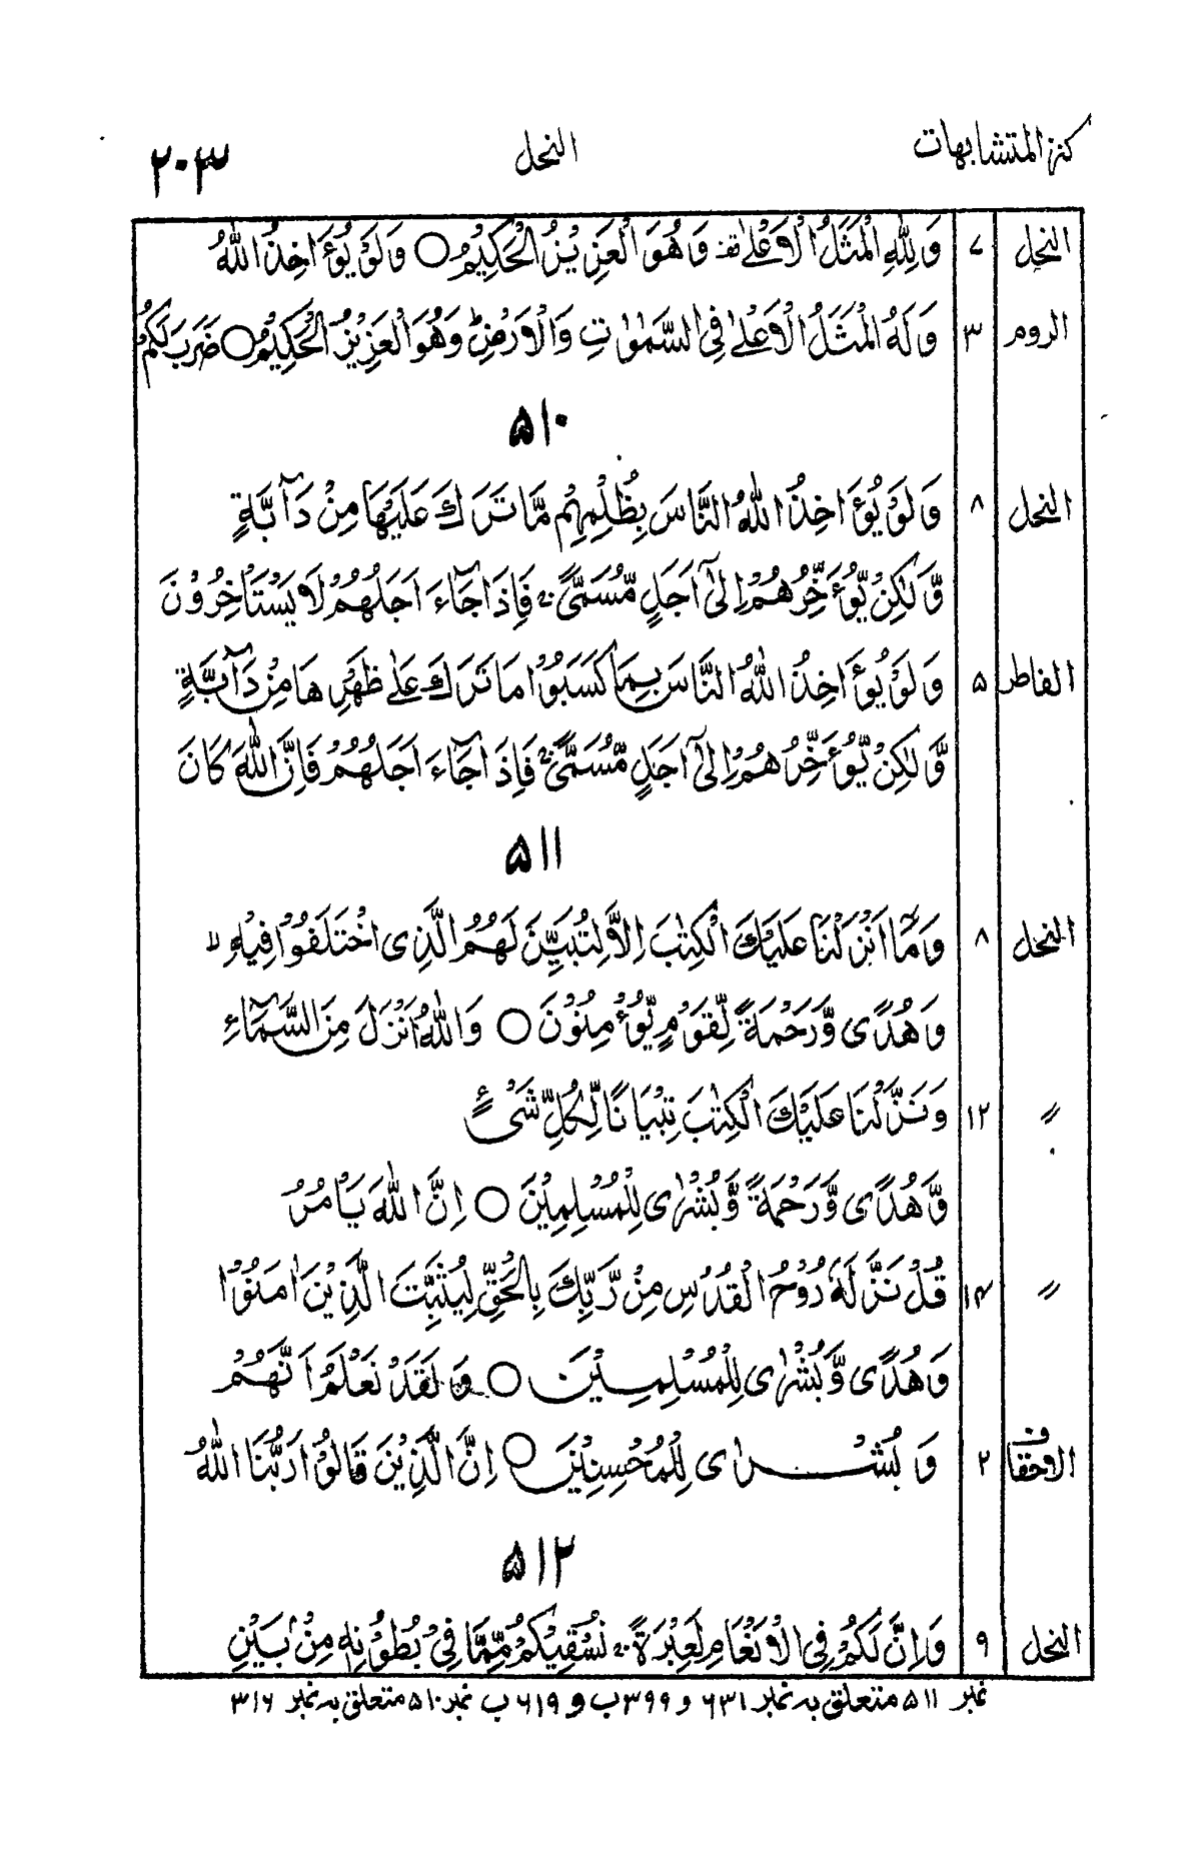 كنز المتشابهات النحل ۲۰۳
النحل ۷ وَلِلّٰهِ الْمَثَلُ الْاَعْلٰى ؕ وَهُوَ الْعَزِيْزُ الْحَكِيْمُ ○ وَلَوْ يُؤَاخِذُ اللّٰهُ
الروم ۳ وَلَهُ الْمَثَلُ الْاَعْلٰى فِى السَّمٰوٰتِ وَالْاَرْضِ ۚ وَهُوَ الْعَزِيْزُ الْحَكِيْمُ ○ ضَرَبَ لَكُمْ
۵۱۰
النحل ۸ وَلَوْ يُؤَاخِذُ اللّٰهُ النَّاسَ بِظُلْمِهِمْ مَّا تَرَكَ عَلَيْهَا مِنْ دَآبَّةٍ
وَّلٰكِنْ يُّؤَخِّرُهُمْ اِلٰٓى اَجَلٍ مُّسَمًّى ۚ فَاِذَا جَآءَ اَجَلُهُمْ لَا يَسْتَاْخِرُوْنَ
الفاطر ۵ وَلَوْ يُؤَاخِذُ اللّٰهُ النَّاسَ بِمَا كَسَبُوْا مَا تَرَكَ عَلٰى ظَهْرِهَا مِنْ دَآبَّةٍ
وَّلٰكِنْ يُّؤَخِّرُهُمْ اِلٰٓى اَجَلٍ مُّسَمًّى ۚ فَاِذَا جَآءَ اَجَلُهُمْ فَاِنَّ اللّٰهَ كَانَ
۵۱۱
النحل ۸ وَمَآ اَنْزَلْنَا عَلَيْكَ الْكِتٰبَ اِلَّا لِتُبَيِّنَ لَهُمُ الَّذِى اخْتَلَفُوْا فِيْهِ ۙ
وَهُدًى وَّرَحْمَةً لِّقَوْمٍ يُّؤْمِنُوْنَ ○ وَاللّٰهُ اَنْزَلَ مِنَ السَّمَآءِ
〃 ۱۲ وَنَزَّلْنَا عَلَيْكَ الْكِتٰبَ تِبْيَانًا لِّكُلِّ شَىْءٍ
وَّهُدًى وَّرَحْمَةً وَّبُشْرٰى لِلْمُسْلِمِيْنَ ○ اِنَّ اللّٰهَ يَاْمُرُ
〃 ۱۴ قُلْ نَزَّلَهٗ رُوْحُ الْقُدُسِ مِنْ رَّبِّكَ بِالْحَقِّ لِيُثَبِّتَ الَّذِيْنَ اٰمَنُوْا
وَهُدًى وَّبُشْرٰى لِلْمُسْلِمِيْنَ ○ وَلَقَدْ نَعْلَمُ اَنَّهُمْ
الاحقاف ۲ وَبُشْرٰى لِلْمُحْسِنِيْنَ ○ اِنَّ الَّذِيْنَ قَالُوْا رَبُّنَا اللّٰهُ
۵۱۲
النحل ۹ وَاِنَّ لَكُمْ فِى الْاَنْعَامِ لَعِبْرَةً ۚ نُسْقِيْكُمْ مِّمَّا فِىْ بُطُوْنِهٖ مِنْۢ بَيْنِ
نمبر ۵۱۱ متعلق بہ نمبر ۶۳۱ و ۳۹۹ ب و ۶۱۹ ب نمبر ۵۱۰ متعلق بہ نمبر ۳۱۶